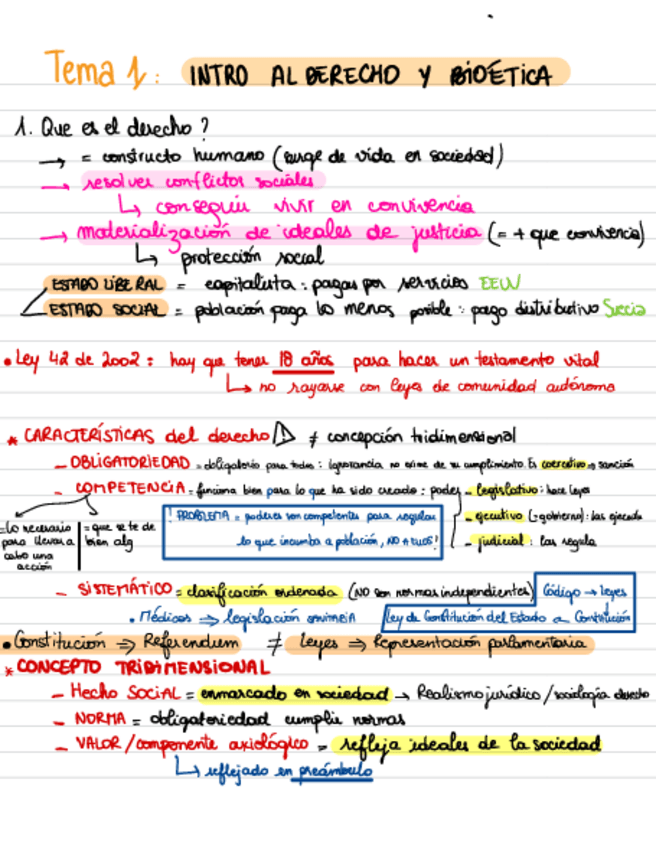 Tema 1: INTRO AL DERECHO Y BIOÉTICA
1. Que es el derecho?
→ = constructo humano (surge de vida en sociedad)
→ resolver conflictos sociales
↳ conseguir vivir en convivencia
→ materialización de ideales de justicia (= + que convivencia)
↳ protección social
ESTADO LIBERAL = capitalista : pagas por servicios EEUU
ESTADO SOCIAL = población paga lo menos posible : pago distributivo Suecia
• Ley 42 de 2002 : hay que tener 18 años para hacer un testamento vital
↳ no rayarse con leyes de comunidad autónoma
* CARACTERÍSTICAS del derecho ⚠ ≠ concepción tridimensional
– OBLIGATORIEDAD = obligatorio para todos : ignorancia no exime de su cumplimiento. Es coercitivo → sanción
– COMPETENCIA = funciona bien para lo que ha sido creado : poder – legislativo : hace leyes
= Lo necesario para llevar a cabo una acción
= que se te de bien alg
! PROBLEMA = poderes son competentes para regular lo que incumba a población, NO A ELLOS!
– ejecutivo (= gobierno) : las ejecuta
– judicial : las regula
– SISTEMÁTICO = clasificación ordenada (NO son normas independientes) Código → leyes
• Médicos ⇒ legislación
Ley de Constitución del Estado a Constitución
• Constitución ⇒ Referendum ≠ Leyes ⇒ Representación parlamentaria
* CONCEPTO TRIDIMENSIONAL
– Hecho SOCIAL = enmarcado en sociedad → Realismo jurídico / sociología derecho
– NORMA = obligatoriedad cumplir normas
– VALOR / componente axiológico = refleja ideales de la sociedad
↳ reflejado en preámbulo